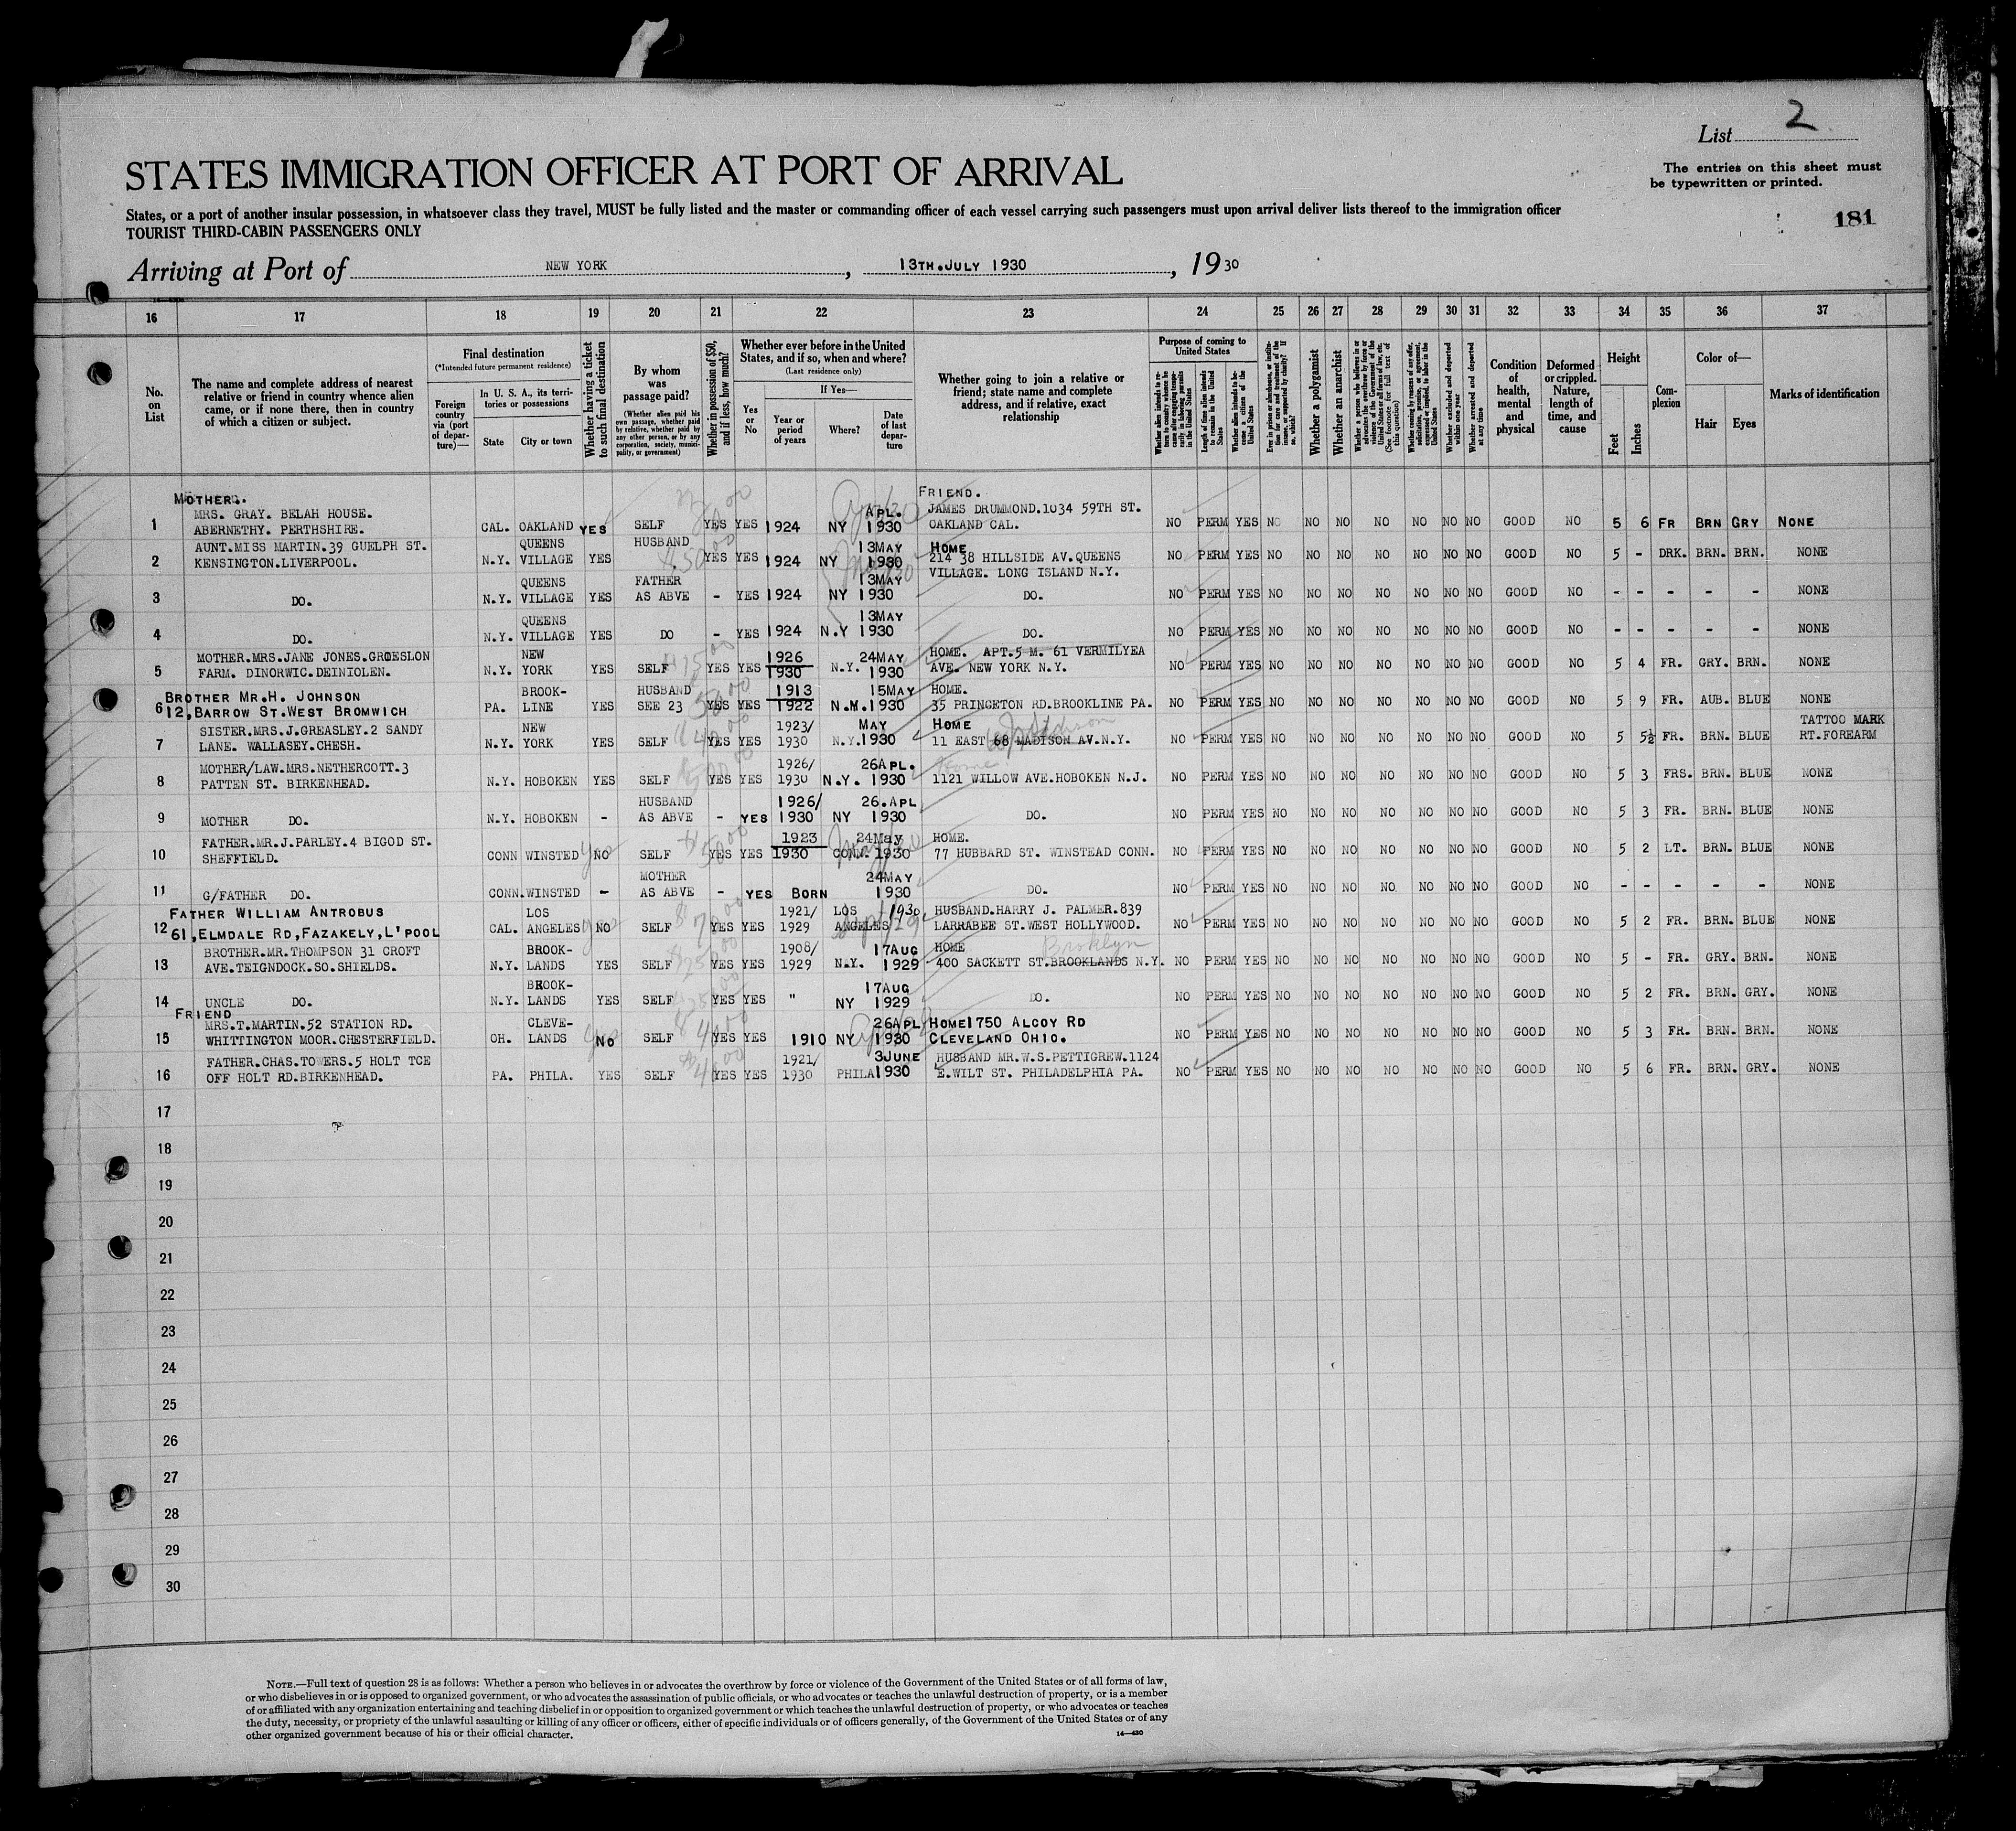 List 2
STATES IMMIGRATION OFFICER AT PORT OF ARRIVAL
The entries on this sheet must
be typewritten or printed.
States, or a port of another insular possession, in whatsoever class they travel, MUST be fully listed and the master or commanding officer of each vessel carrying such passengers must upon arrival deliver lists thereof to the immigration officer
TOURIST THIRD-CABIN PASSENGERS ONLY
181
Arriving at Port of NEW YORK, 13TH.JULY 1930, 1930
16 17 18 19 20 21 22 23 24 25 26 27 28 29 30 31 32 33 34 35 36 37
No. on List
The name and complete address of nearest relative or friend in country whence alien came, or if none there, then in country of which a citizen or subject.
Final destination
(*Intended future permanent residence)
Foreign country via (port of departure)—
In U. S. A., its territories or possessions
State City or town
Whether having a ticket to such final destination
By whom was passage paid?
(Whether alien paid his own passage, whether paid by relative, whether paid by any other person, or by any corporation, society, municipality, or government)
Whether in possession of $50, and if less, how much?
Whether ever before in the United States, and if so, when and where?
(Last residence only)
Yes or No
If Yes—
Year or period of years
Where?
Date of last departure
Whether going to join a relative or friend; state name and complete address, and if relative, exact relationship
Purpose of coming to United States
Whether alien intends to return to country whence he came after engaging temporarily in laboring pursuits in the United States
Length of time alien intends to remain in the United States
Whether alien intends to become a citizen of the United States
Ever in prison or almshouse, or institution for care and treatment of the insane, or supported by charity? If so, which?
Whether a polygamist
Whether an anarchist
Whether a person who believes in or advocates the overthrow by force or violence of the Government of the United States or all forms of law, etc. (See footnote for full text of this question)
Whether coming by reasons of any offer, solicitation, promise, or agreement, expressed or implied, to labor in the United States
Whether excluded and deported within one year
Whether arrested and deported at any time
Condition of health, mental and physical
Deformed or crippled. Nature, length of time, and cause
Height
Feet Inches
Complexion
Color of—
Hair Eyes
Marks of identification
1 MOTHER. MRS. GRAY. BELAH HOUSE. ABERNETHY. PERTHSHIRE. CAL. OAKLAND YES SELF YES YES 1924 NY APL. 1930 FRIEND. JAMES DRUMMOND.1034 59TH ST. OAKLAND CAL. NO PERM YES NO NO NO NO NO NO NO GOOD NO 5 6 FR BRN GRY NONE
2 AUNT.MISS MARTIN.39 GUELPH ST. KENSINGTON.LIVERPOOL. N.Y. QUEENS VILLAGE YES HUSBAND YES YES 1924 NY 13MAY 1930 HOME 214 38 HILLSIDE AV.QUEENS VILLAGE. LONG ISLAND N.Y. NO PERM YES NO NO NO NO NO NO NO GOOD NO 5 - DRK. BRN. BRN. NONE
3 DO. N.Y. QUEENS VILLAGE YES FATHER AS ABVE - YES 1924 NY 13MAY 1930 DO. NO PERM YES NO NO NO NO NO NO NO GOOD NO - - - - - NONE
4 DO. N.Y. QUEENS VILLAGE YES DO - YES 1924 N.Y 13MAY 1930 DO. NO PERM YES NO NO NO NO NO NO NO GOOD NO - - - - - NONE
5 MOTHER.MRS.JANE JONES.GROESLON FARM. DINORWIC.DEINIOLEN. N.Y. NEW YORK YES SELF YES YES 1926 1930 N.Y. 24MAY 1930 HOME. APT.5 M. 61 VERMILYEA AVE. NEW YORK N.Y. NO PERM YES NO NO NO NO NO NO NO GOOD NO 5 4 FR. GRY. BRN. NONE
6 BROTHER MR.H. JOHNSON 12,BARROW ST.WEST BROMWICH PA. BROOK-LINE YES HUSBAND SEE 23 YES YES 1913 1922 15MAY 1930 HOME. 35 PRINCETON RD.BROOKLINE PA. NO PERM YES NO NO NO NO NO NO NO GOOD NO 5 9 FR. AUB. BLUE NONE
7 SISTER.MRS.J.GREASLEY.2 SANDY LANE. WALLASEY.CHESH. N.Y. NEW YORK YES SELF YES YES 1923/ 1930 N.Y. MAY 1930 HOME 11 EAST 68 MADISON AV.N.Y. NO PERM YES NO NO NO NO NO NO NO GOOD NO 5 5½ FR. BRN. BLUE TATTOO MARK RT.FOREARM
8 MOTHER/LAW.MRS.NETHERCOTT.3 PATTEN ST. BIRKENHEAD. N.Y. HOBOKEN YES SELF YES YES 1926/ 1930 N.Y. 26APL. 1930 Home 1121 WILLOW AVE.HOBOKEN N.J. NO PERM YES NO NO NO NO NO NO NO GOOD NO 5 3 FRS. BRN. BLUE NONE
9 MOTHER DO. N.Y. HOBOKEN - HUSBAND AS ABVE - YES 1926/ 1930 NY 26.APL 1930 DO. NO PERM YES NO NO NO NO NO NO NO GOOD NO 5 3 FR. BRN. BLUE NONE
10 FATHER.MR.J.PARLEY.4 BIGOD ST. SHEFFIELD. CONN WINSTED NO yes SELF YES YES 1923 1930 CONN. 24May 1930 HOME. 77 HUBBARD ST. WINSTEAD CONN. NO PERM YES NO NO NO NO NO NO NO GOOD NO 5 2 LT. BRN. BLUE NONE
11 G/FATHER DO. CONN.WINSTED - MOTHER AS ABVE - YES BORN 24MAY 1930 DO. NO PERM YES NO NO NO NO NO NO NO GOOD NO - - - - - NONE
12 FATHER WILLIAM ANTROBUS 61,ELMDALE RD,FAZAKELY,L'POOL CAL. LOS ANGELES NO yes SELF YES YES 1921/ 1929 LOS ANGELES 1930 HUSBAND.HARRY J. PALMER.839 LARRABEE ST.WEST HOLLYWOOD. NO PERM YES NO NO NO NO NO NO NO GOOD NO 5 2 FR. BRN. BLUE NONE
13 BROTHER.MR.THOMPSON 31 CROFT AVE.TEIGNDOCK.SO.SHIELDS. N.Y. BROOK-LANDS YES SELF YES YES 1908/ 1929 N.Y. 17AUG 1929 HOME 400 SACKETT ST.BROOKLANDS N.Y. Broklyn NO PERM YES NO NO NO NO NO NO NO GOOD NO 5 - FR. GRY. BRN. NONE
14 UNCLE DO. N.Y. BROOK-LANDS YES SELF YES YES " NY 17AUG 1929 DO. NO PERM YES NO NO NO NO NO NO NO GOOD NO 5 2 FR. BRN. GRY. NONE
15 FRIEND MRS.T.MARTIN.52 STATION RD. WHITTINGTON MOOR.CHESTERFIELD. OH. CLEVE-LANDS NO yes SELF YES YES 1910 NY 26APL 1930 HOME1750 ALCOY RD CLEVELAND OHIO. NO PERM YES NO NO NO NO NO NO NO GOOD NO 5 3 FR. BRN. BRN. NONE
16 FATHER.CHAS.TOWERS.5 HOLT TCE OFF HOLT RD.BIRKENHEAD. PA. PHILA. YES SELF YES YES 1921/ 1930 PHILA 3JUNE 1930 HUSBAND MR.W.S.PETTIGREW.1124 E.WILT ST. PHILADELPHIA PA. NO PERM YES NO NO NO NO NO NO NO GOOD NO 5 6 FR. BRN. GRY. NONE
17
18
19
20
21
22
23
24
25
26
27
28
29
30
NOTE.—Full text of question 28 is as follows: Whether a person who believes in or advocates the overthrow by force or violence of the Government of the United States or of all forms of law,
or who disbelieves in or is opposed to organized government, or who advocates the assassination of public officials, or who advocates or teaches the unlawful destruction of property, or is a member
of or affiliated with any organization entertaining and teaching disbelief in or opposition to organized government or which teaches the unlawful destruction of property, or who advocates or teaches
the duty, necessity, or propriety of the unlawful assaulting or killing of any officer or officers, either of specific individuals or of officers generally, of the Government of the United States or of any
other organized government because of his or their official character.
14—430